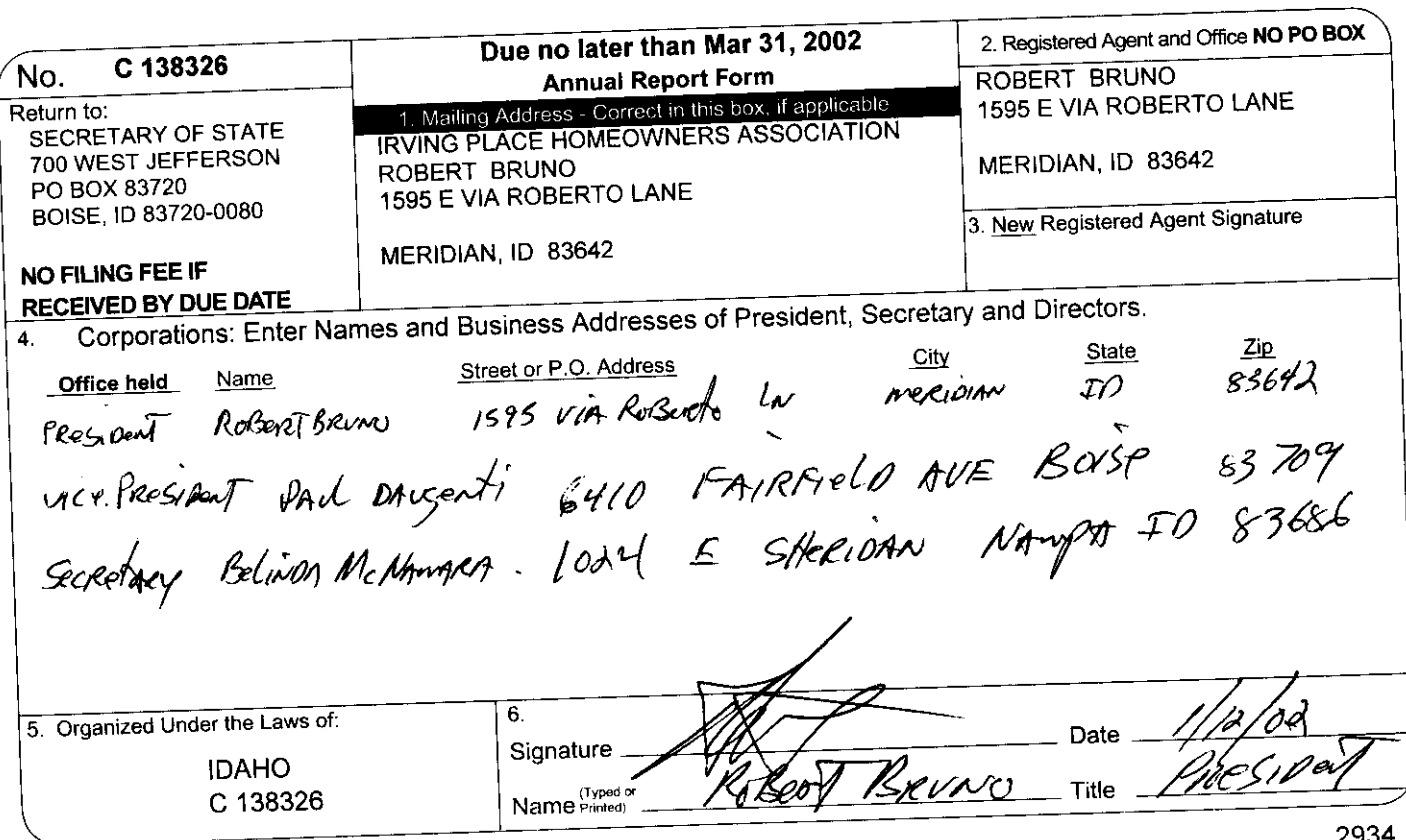 No. C 138326
Return to:
SECRETARY OF STATE
700 WEST JEFFERSON
PO BOX 83720
BOISE, ID 83720-0080
NO FILING FEE IF
RECEIVED BY DUE DATE
Due no later than Mar 31, 2002
Annual Report Form
1. Mailing Address - Correct in this box, if applicable
IRVING PLACE HOMEOWNERS ASSOCIATION
ROBERT BRUNO
1595 E VIA ROBERTO LANE
MERIDIAN, ID 83642
2. Registered Agent and Office NO PO BOX
ROBERT BRUNO
1595 E VIA ROBERTO LANE
MERIDIAN, ID 83642
3. New Registered Agent Signature
4. Corporations: Enter Names and Business Addresses of President, Secretary and Directors.
Office held Name Street or P.O. Address City State Zip
President Robert Bruno 1595 Via Roberto Ln Meridian ID 83642
Vice. President Paul 6410 Fairfield Ave Boise 83709
Secretary Belinda McNamara. 1024 E Sheridan Nampa ID 83686
5. Organized Under the Laws of:
IDAHO
C 138326
6.
Signature Date 1/12/02
Name (Typed or Printed) Robert Bruno Title President
2934